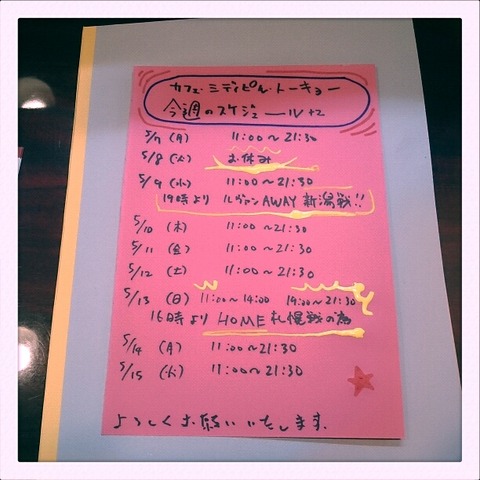 カフェ・ミディピル・トーキョー
今週のスケジュール
5/7 (月) 11:00〜21:30
5/8 (火) お休み
5/9 (水) 11:00〜21:30
19時より ルヴァンAWAY 新潟戦!!
5/10 (木) 11:00〜21:30
5/11 (金) 11:00〜21:30
5/12 (土) 11:00〜21:30
5/13 (日) 11:00〜14:00 19:00〜21:30
16時より HOME 札幌戦の為
5/14 (月) 11:00〜21:30
5/15 (火) 11:00〜21:30
よろしくお願いいたします。